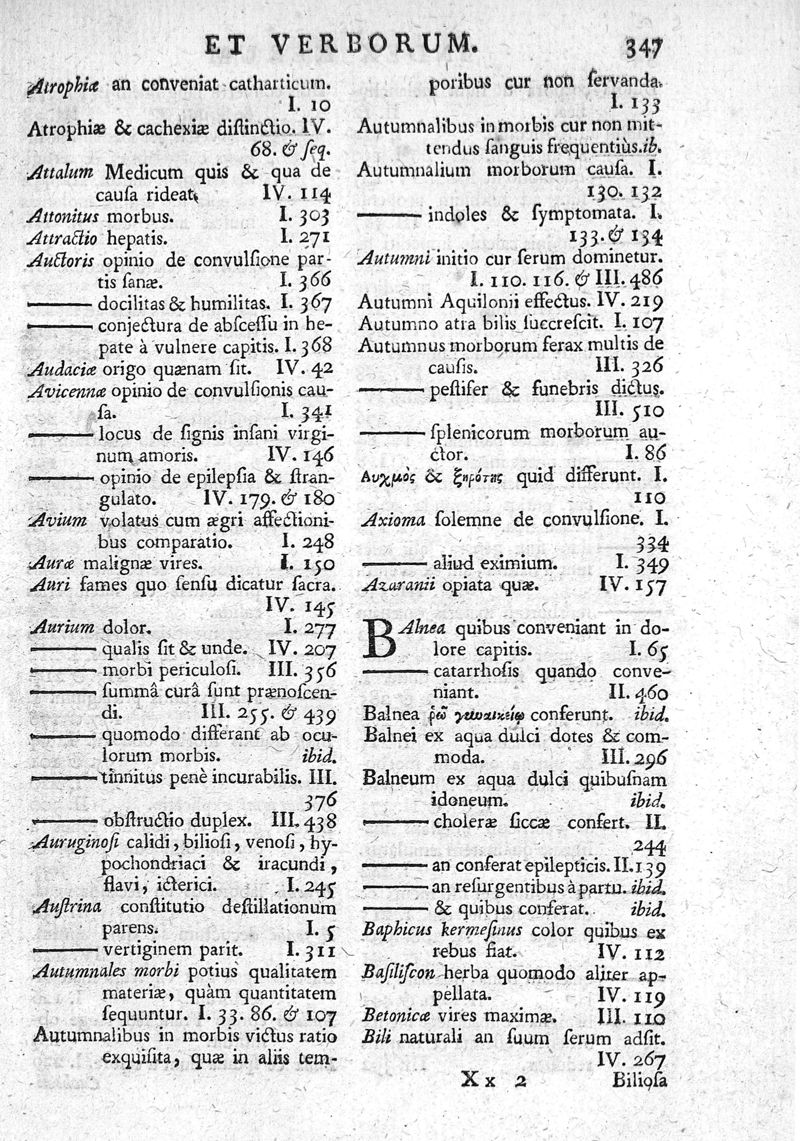 ET VERBORUM. 347
Atrophiæ an conveniat catharticum.
I. 10
Atrophiæ & cachexiæ diſtinctio. IV.
68. & ſeq.
Attalum Medicum quis & qua de
cauſa rideat. IV. 114
Attonitus morbus. I. 303
Attractio hepatis. I. 271
Auctoris opinio de convulſione par-
tis ſanæ. I. 366
——— docilitas & humilitas. I. 367
——— conjectura de abſceſſu in he-
pate à vulnere capitis. I. 368
Audaciæ origo quænam ſit. IV. 42
Avicennæ opinio de convulſionis cau-
ſa. I. 341
——— locus de ſignis inſani virgi-
num amoris. IV. 146
——— opinio de epilepſia & ſtran-
gulato. IV. 179. & 180
Avium volatus cum ægri affectioni-
bus comparatio. I. 248
Auræ malignæ vires. I. 150
Auri fames quo ſenſu dicatur ſacra.
IV. 145
Aurium dolor. I. 277
——— qualis ſit & unde. IV. 207
——— morbi periculoſi. III. 356
——— ſummâ curâ ſunt prænoſcen-
di. III. 255. & 439
——— quomodo differant ab ocu-
lorum morbis. ibid.
——— tinnitus penè incurabilis. III.
376
——— obſtructio duplex. III. 438
Auruginoſi calidi, bilioſi, venoſi, hy-
pochondriaci & iracundi,
flavi, icterici. I. 245
Auſtrina conſtitutio deſtillationum
parens. I. 5
——— vertiginem parit. I. 311
Autumnales morbi potius qualitatem
materiæ, quàm quantitatem
ſequuntur. I. 33. 86. & 107
Autumnalibus in morbis victus ratio
exquiſita, quæ in aliis tem-
poribus cur non ſervanda.
I. 133
Autumnalibus in morbis cur non mit-
tendus ſanguis frequentiùs. ib.
Autumnalium morborum cauſa. I.
130. 132
——— indoles & ſymptomata. I.
133. & 134
Autumni initio cur ſerum dominetur.
I. 110. 116. & III. 486
Autumni Aquilonii effectus. IV. 219
Autumno atra bilis ſuccreſcit. I. 107
Autumnus morborum ferax multis de
cauſis. III. 326
——— peſtifer & funebris dictus.
III. 510
——— ſplenicorum morborum au-
ctor. I. 86
Αυχμὸς & ξηρότης quid differunt. I.
110
Axioma ſolemne de convulſione. I.
334
——— aliud eximium. I. 349
Azaranii opiata quæ. IV. 157
BAlnea quibus conveniant in do-
lore capitis. I. 65
——— catarrhoſis quando conve-
niant. II. 460
Balnea ῥῷ γυναικείῳ conferunt. ibid.
Balnei ex aqua dulci dotes & com-
moda. III. 296
Balneum ex aqua dulci quibuſnam
idoneum. ibid.
——— choleræ ſiccæ confert. II.
244
——— an conferat epilepticis. II. 139
——— an reſurgentibus à partu. ibid.
——— & quibus conferat. ibid.
Baphicus kermeſinus color quibus ex
rebus fiat. IV. 112
Baſiliſcon herba quomodo aliter ap-
pellata. IV. 119
Betonicæ vires maximæ. III. 110
Bili naturali an ſuum ſerum adſit.
IV. 267
Xx 2 Bilioſa